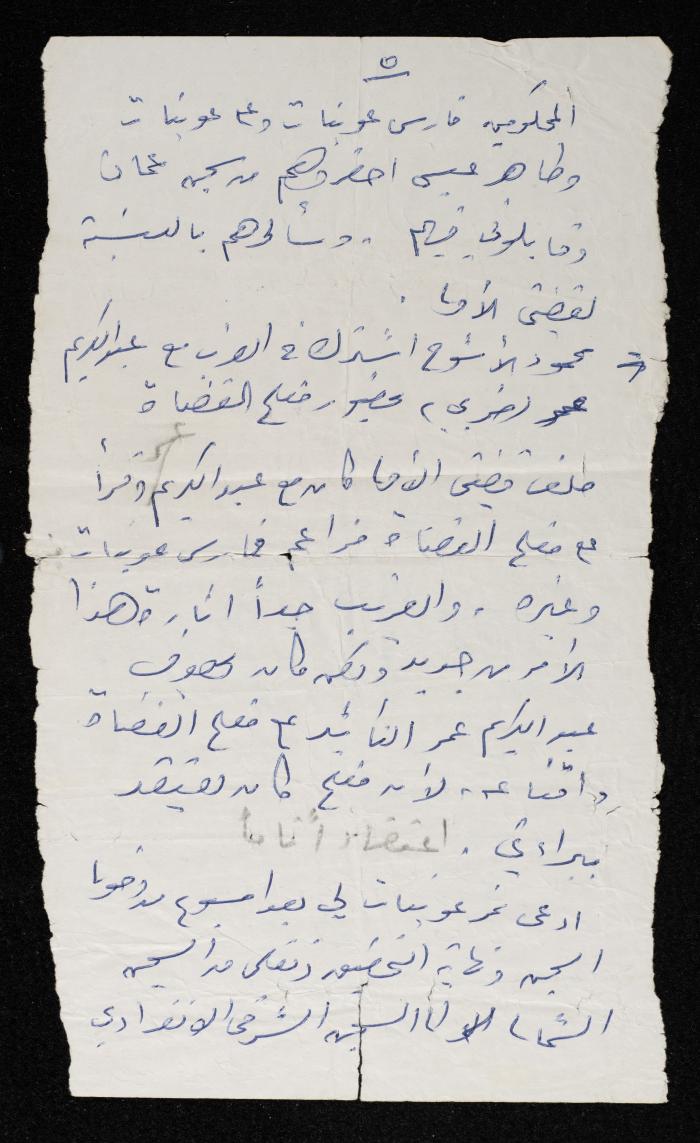 ٥
المحكومين فارس عوينات وعلي عوينات
وطاهر عيسى احضروهم من سجن عمان
وقابلوني فيهم . وسألوهم بالنسبة
لقضيتي الأولى .
محمود الأشوح اشترك في الضرب مع عبد الكريم
عمر (ضربي) بحضور مفلح القضاة
عمر
ملف قضيتي الأولى كان مع عبد الكريم وقرأ
مع مفلح القضاة فارس عوينات
وغيره . والغريب جداً اثارة هذا
الأمر من جديد ولكن كان بهدف
عبد الكريم عمر التأثير على مفلح القضاة
واقناعه . لأن مفلح كان يعتقد
ببراءتي . اعتقاداً تاماً
ادعى نمر عوينات لي بعد اسبوع من دخولي
السجن ونهاية التحقيق ونقلي من السجن
الشمالي الى السجن الشرقي الانفرادي